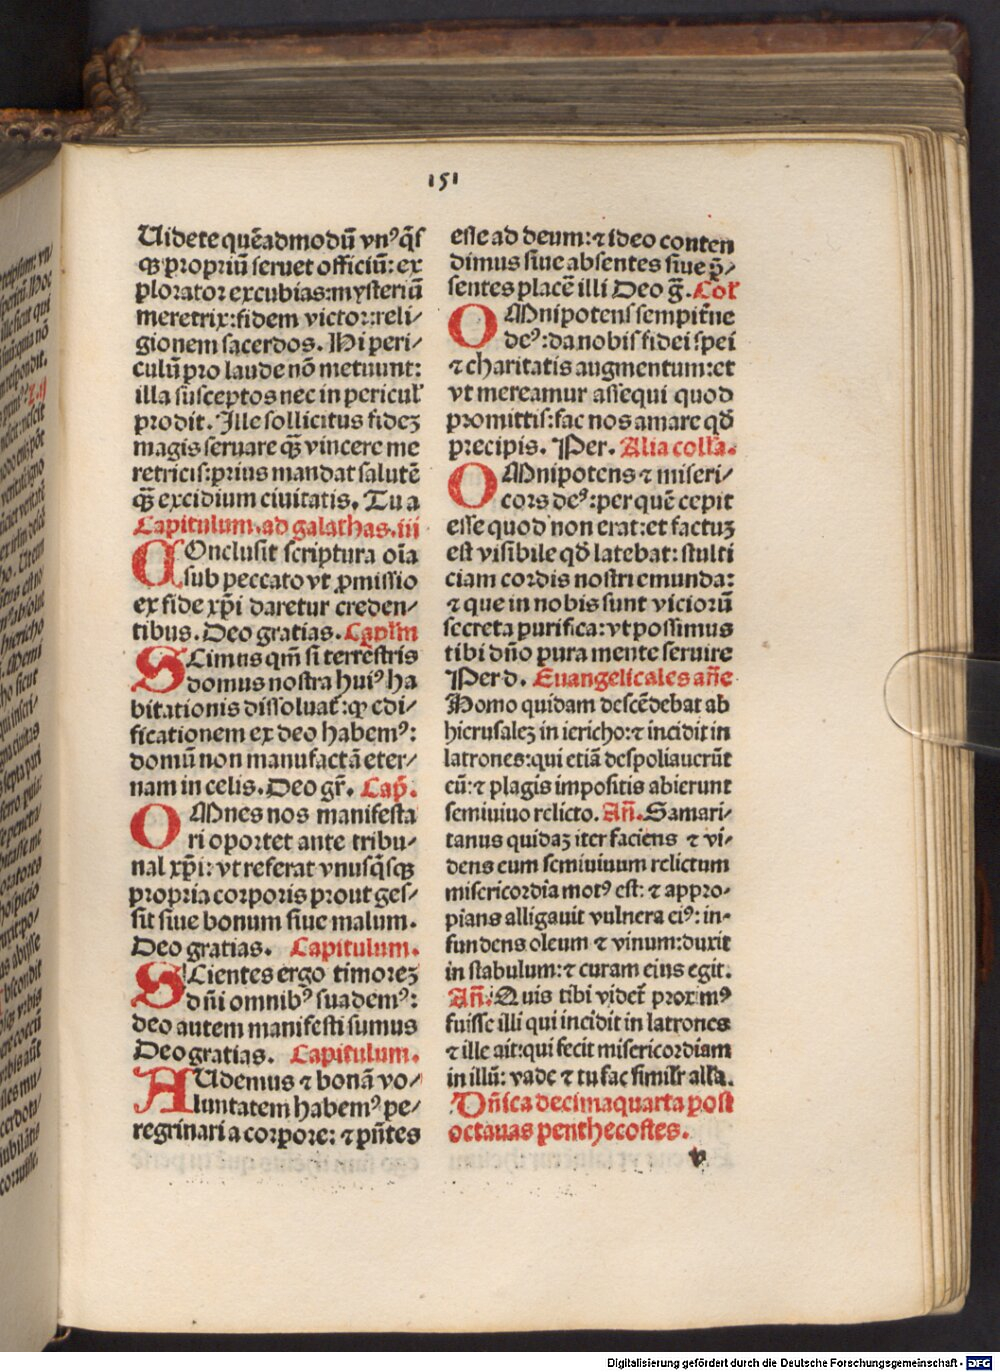 151
Uidete quēadmodū vnꝰ q̄ſ
qꝫ propriū ſeruet officiū: ex
plorator excubias: myſteriū
meretrix: fidem victor: reli⸗
gionem ſacerdos. Hi peri⸗
culū pro laude nō metuunt:
illa ſuſceptos nec in pericul'
prodit. Ille ſollicitus fideꝫ
magis ſeruare qꝫ̄ vincere me
retricis: prius mandat ſalutē
qꝫ̄ excidium ciuitatis. Tu a
Capitulum. ad galathas. iii
COncluſit ſcriptura oīa
ſub peccato vt ꝓmiſſio
ex fide xp̄i daretur creden⸗
tibus. Deo gratias. Capl̄m
SCimus qm̄ ſi terreſtris
domus noſtra huiꝰ ha
bitationis diſſoluat̄: qꝙ edi⸗
ficationem ex deo habemꝰ:
domū non manufactā eter⸗
nam in celis. Deo gr̄. Cap̄.
OMnes nos manifeſta
ri oportet ante tribu⸗
nal xp̄i: vt referat vnuſq̄ſqꝫ
propria corporis prout geſ⸗
ſit ſiue bonum ſiue malum.
Deo gratias. Capitulum.
SCientes ergo timoreꝫ
dn̄i omnibꝰ ſuademꝰ:
deo autem manifeſti ſumus
Deo gratias. Capitulum.
AUdemus ⁊ bonā vo⸗
luntatem habemꝰ pe⸗
regrinari a corpore: ⁊ pn̄tes
eſſe ad deum: ⁊ ideo conten
dimus ſiue abſentes ſiue p̄⸗
ſentes placē illi Deo g̃. Col'
OMnipotens ſempit̄ne
deꝰ: da nobis fidei ſpei
⁊ charitatis augmentum: et
vt mereamur aſſequi quod
promittis: fac nos amare qd̄
precipis. Per. Alia colla.
OMnipotens ⁊ miſeri⸗
cors deꝰ: per quē cepit
eſſe quod non erat: et factuꝫ
eſt viſibile qd̄ latebat: ſtulti
ciam cordis noſtri emunda:
⁊ que in nobis ſunt viciorū
ſecreta purifica: vt poſſimus
tibi dn̄o pura mente ſeruire
Per d. Euangelicales an̄e
Homo quidam deſcēdebat ab
hieruſaleꝫ in iericho: ⁊ incidit in
latrones: qui etiā deſpoliauerūt
eū: ⁊ plagis impoſitis abierunt
ſemiuiuo relicto. An̄. Samari⸗
tanus quidaꝫ iter faciens ⁊ vi⸗
dens eum ſemiuiuum relictum
miſericordia motꝰ eſt: ⁊ appro⸗
pians alligauit vulnera eiꝰ: in⸗
fundens oleum ⁊ vinum: duxit
in ſtabulum: ⁊ curam eius egit.
An̄. Quis tibi videt̄ proximꝰ
fuiſſe illi qui incidit in latrones
⁊ ille ait: qui fecit miſericordiam
in illū: vade ⁊ tu fac ſimilr̄ alla.
Dn̄ica decimaquarta poſt
octauas penthecoſtes.
v
Digitalisierung gefördert durch die Deutsche Forschungsgemeinschaft - DFG